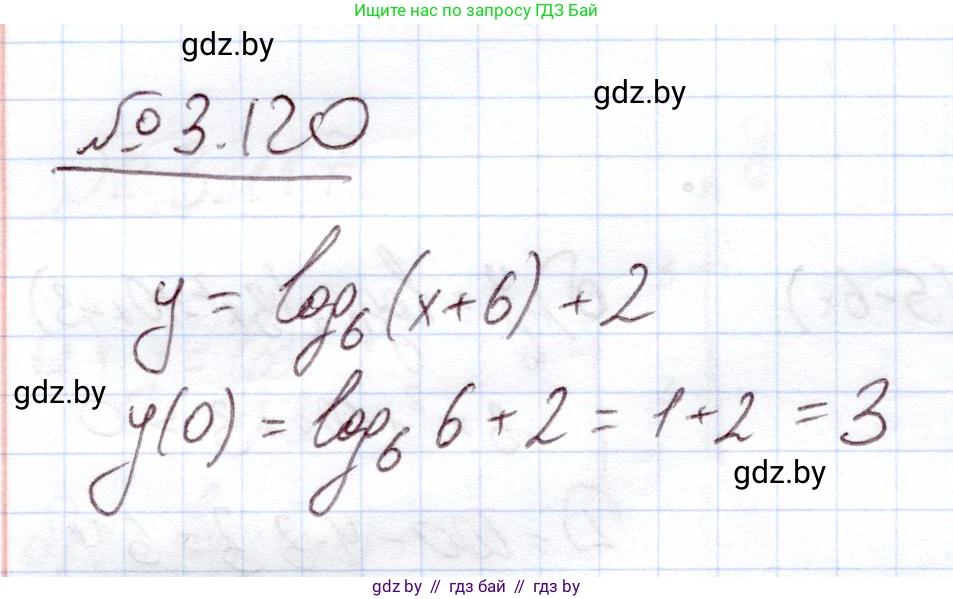 Ищите нас по запросу ГДЗ Бай
gdz.by
gdz.by
№ 3.120
y = log₆(x+6) + 2
gdz.by
y(0) = log₆ 6 + 2 = 1 + 2 = 3
gdz.by
gdz.by // гдз бай // гдз by